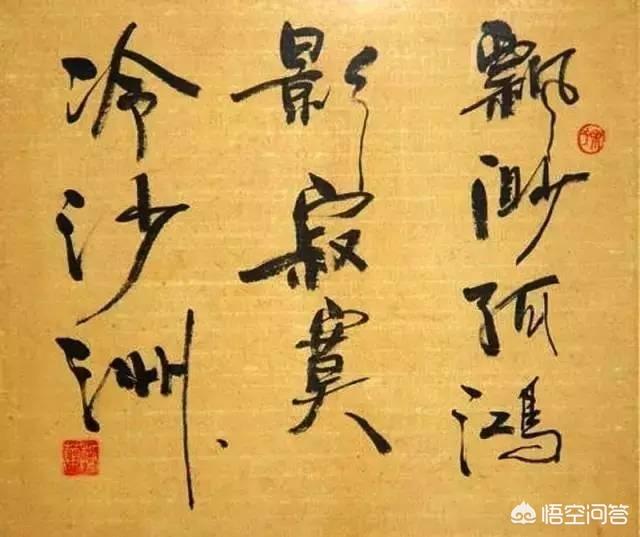 飄渺孤鴻
影寂寞
冷沙洲
悟空问答